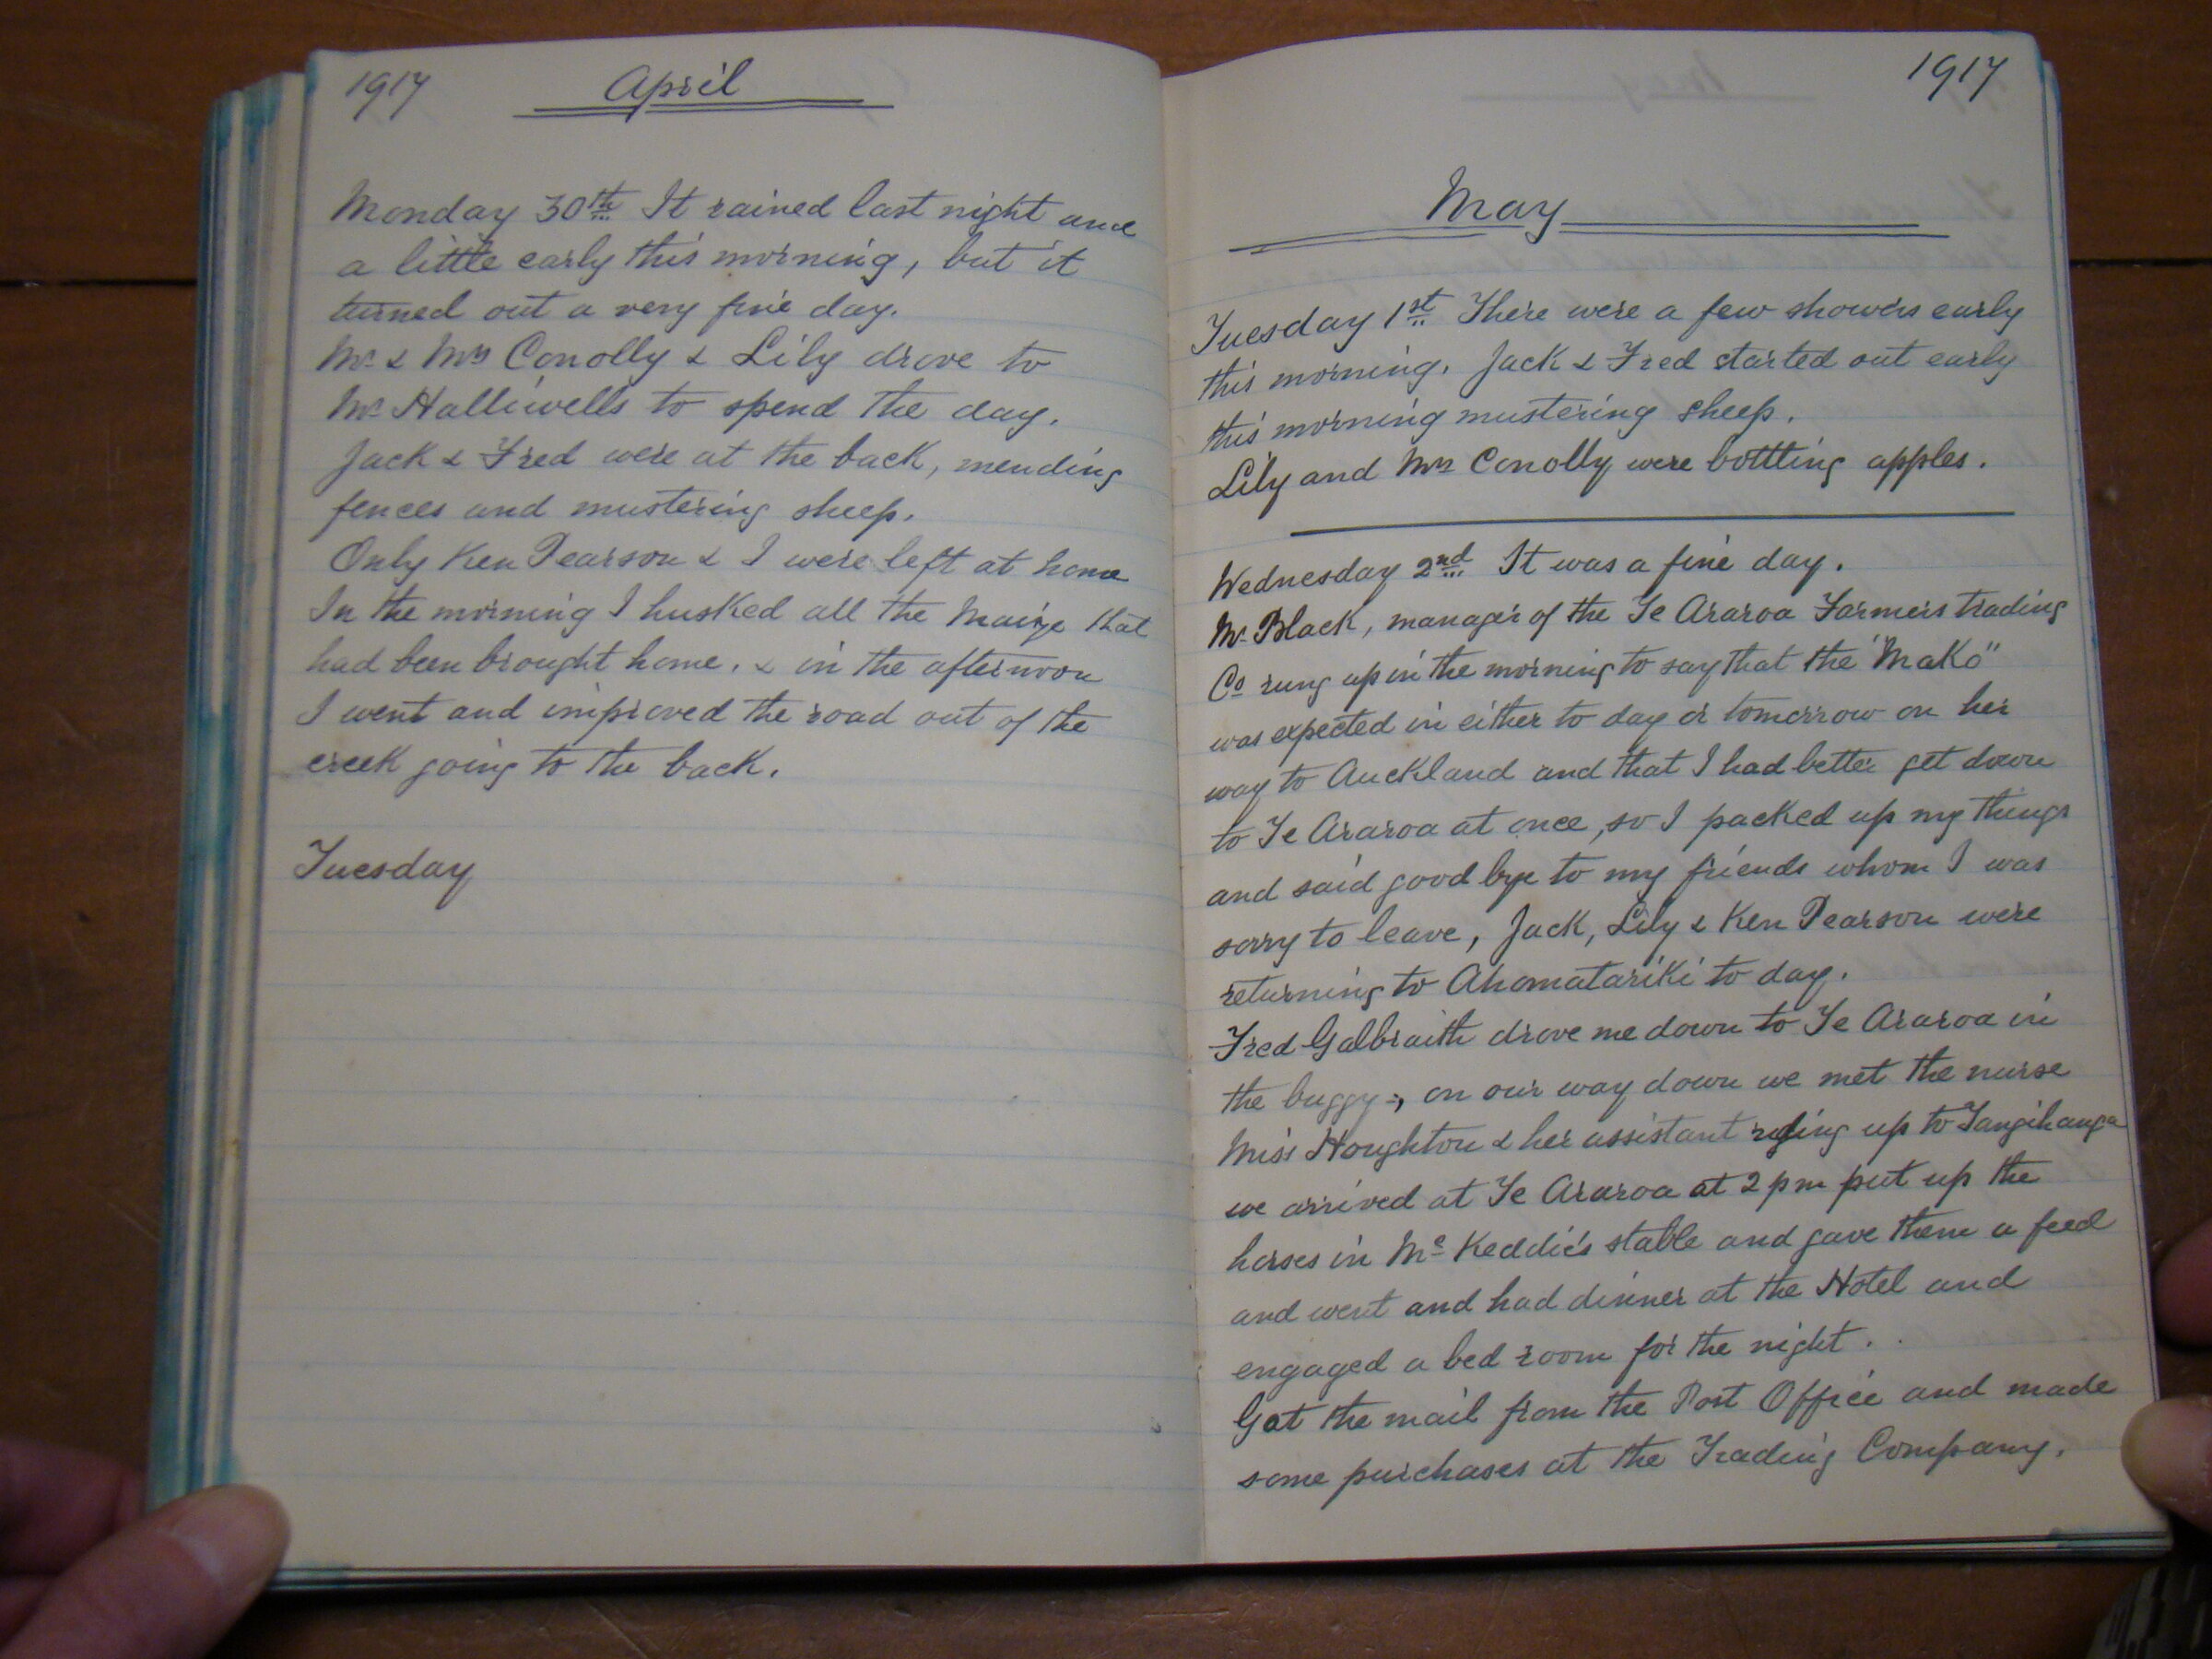 1917 April
Monday 30th It rained last night and
a little early this morning, but it
turned out a very fine day.
Mr & Mrs Conolly & Lily drove to
Mr Halliwells to spend the day.
Jack & Fred were at the back, mending
fences and mustering sheep.
Only Ken Pearson & I were left at home
In the morning I husked all the Maize that
had been brought home. & in the afternoon
I went and improved the road out of the
creek going to the back.
Tuesday
1917
May
Tuesday 1st There were a few showers early
this morning. Jack & Fred started out early
this morning mustering sheep.
Lily and Mrs Conolly were bottling apples.
Wednesday 2nd It was a fine day.
Mr Black, manager of the Te Araroa Farmers Trading
Co rung up in the morning to say that the "Mako"
was expected in either to day or tomorrow on her
way to Auckland and that I had better get down
to Te Araroa at once, so I packed up my things
and said good bye to my friends whom I was
sorry to leave, Jack, Lily & Ken Pearson were
returning to Ahomatariki to day.
Fred Galbraith drove me down to Te Araroa in
the buggy, on our way down we met the nurse
Miss Houghton & her assistant riding up to Tangihanga
we arrived at Te Araroa at 2 pm put up the
horses in Mc Keddie's stable and gave them a feed
and went and had dinner at the Hotel and
engaged a bed room for the night.
Got the mail from the Post Office and made
some purchases at the Trading Company.